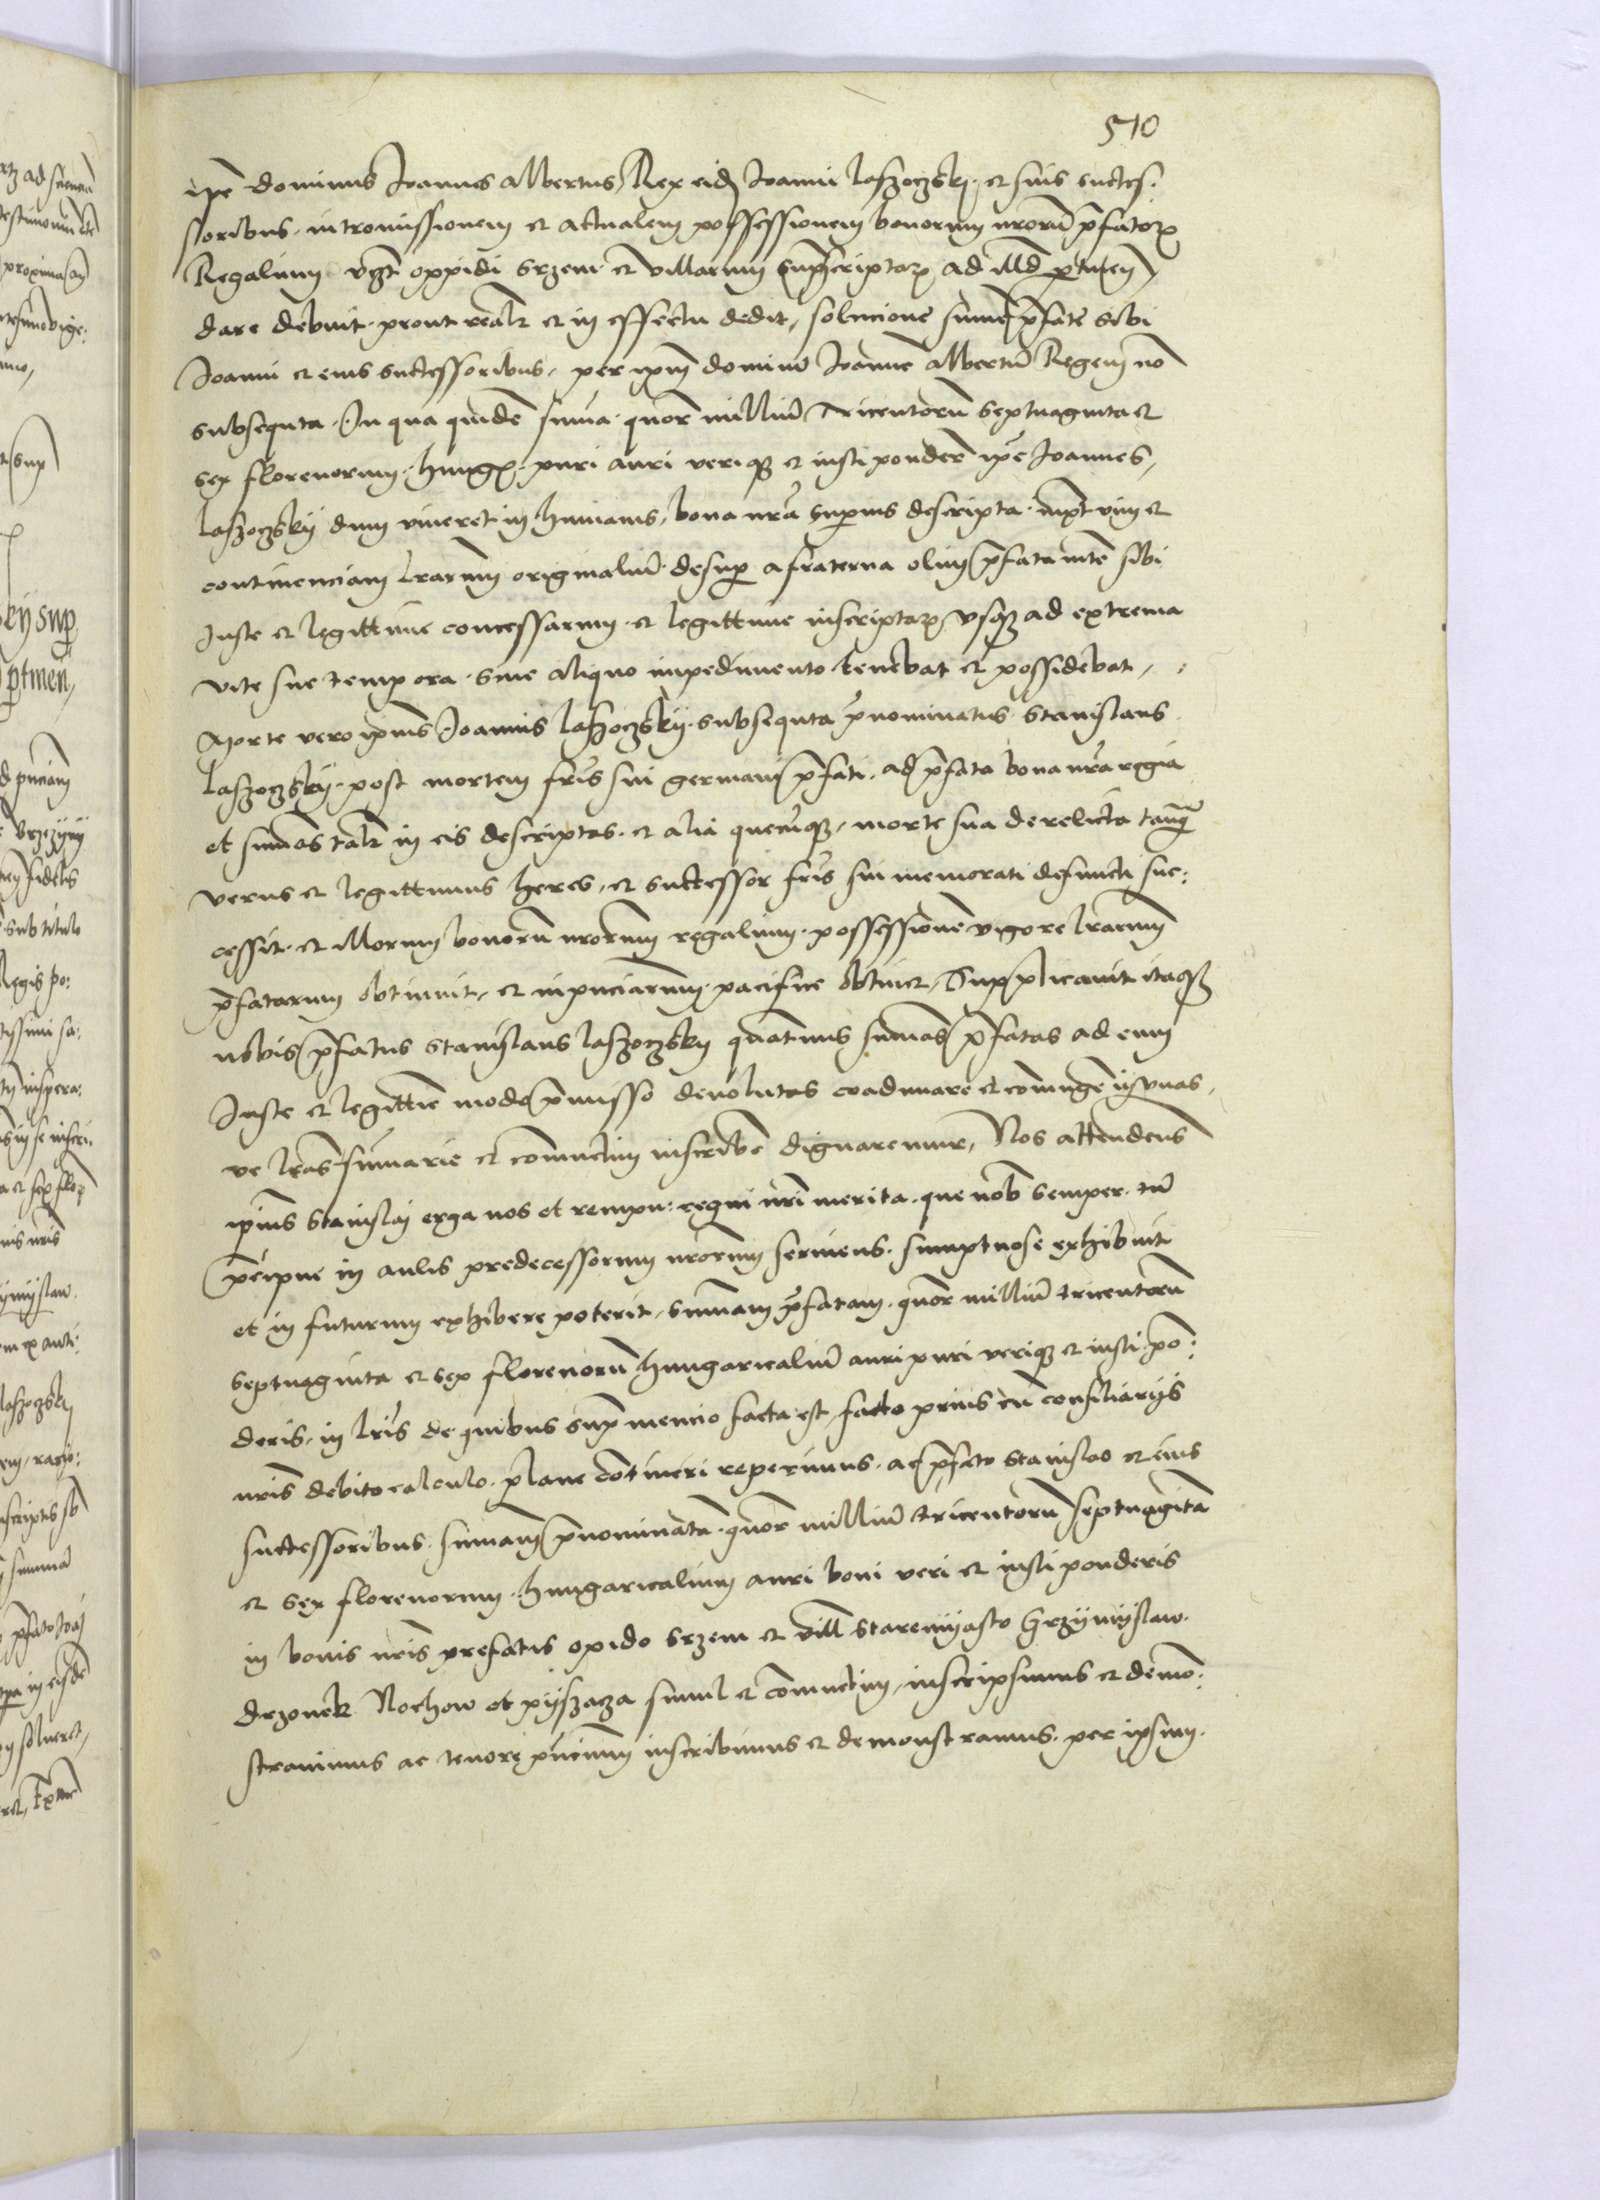 510
ipe dominus Joannes Albertus Rex eidē Joanni laszoczskj et suis succes:
soribus intromissionem et actualem possessionem bonorum nrorū p̄fatorꝝ
Regalium vꝫt oppidi Srzem et villarum supscriptarꝫ ad illd ptiñ
dare debuit prout realr et in effectu dedit, solucione sume p̄fate sibi
Joanni et eius successoribus, per ipm dominū Joannē Albertū Regem nō
subsequta. In qua quidē sūma quor milliū tricentorū septuaginta et
sex florenorum hungꝫ puri auri veriqꝫ et iusti ponderꝫ ipe Joannes
laszoczskij dum viueret in humanis, bona nra superius descripta iuxt vim et
continenciam lrarum originaliū desup a fraterna olim p̄fata mte sibi
Juste et legittime concessarum et legittime inscriptarꝫ vsqꝫ ad extrema
vite sue tempora sine aliquo impedimento tenebat et possidebat,
Morte vero ipius Joannis laszoczskij subsequta p̄nominatus Stanislaus
laszoczskij post mortem fris sui germani p̄fati ad p̄fata bona nra regia
et sumas talr in eis descriptas et alia quecūqꝫ morte sua derelicta tanqꝫ
verus et legittimus heres, et successor fris sui memorati defuncti suc:
cessit et illorum bonorū nrorum regalium possessionē vigore lrarum
p̄fatarum obtinuit, et inpnciarum pacifice obtinet, Supplicauit itaqꝫ
nobis p̄fatus Stanislaus laszoczskij quatinus sumas p̄fatas ad eum
Juste et legittie modo p̄misso deuolutas coadunare et coniungē in vnas
ve lras sumarie et coniunctim inscribē dignaremur, Nos attendens
ipius Stanislaj erga nos et rempu: regni nri merita que nob semper tū
p̄cipue in aulis predecessorum nrorum seruiens sumptuose exhibuit
et in futurum exhibere poterit, sumam p̄fatam quor milliū tricentorū
septuaginta et sex florenorū hungaricaliū auri puri veriqꝫ et iusti po:
deris, in lris de quibus supꝫ mencio facta est facto prius cū consiliarijs
nris debito calculo plane cōtineri reperimus ac p̄fato Stanislao et eius
successoribus sumam p̄nominatā quor milliū tricentorū septuaginta
et sex florenorum hungaricalium auri boni veri et iusti ponderis
in bonis nris prefatis opido Srzem et vill Staremyasto Grzymyslaw
drzonek Nochow et pyszacza simul et coniunctim, inscripsimus et demo:
strauimus ac tenore pn̄cium inscribimus et demonstramus per ipsum